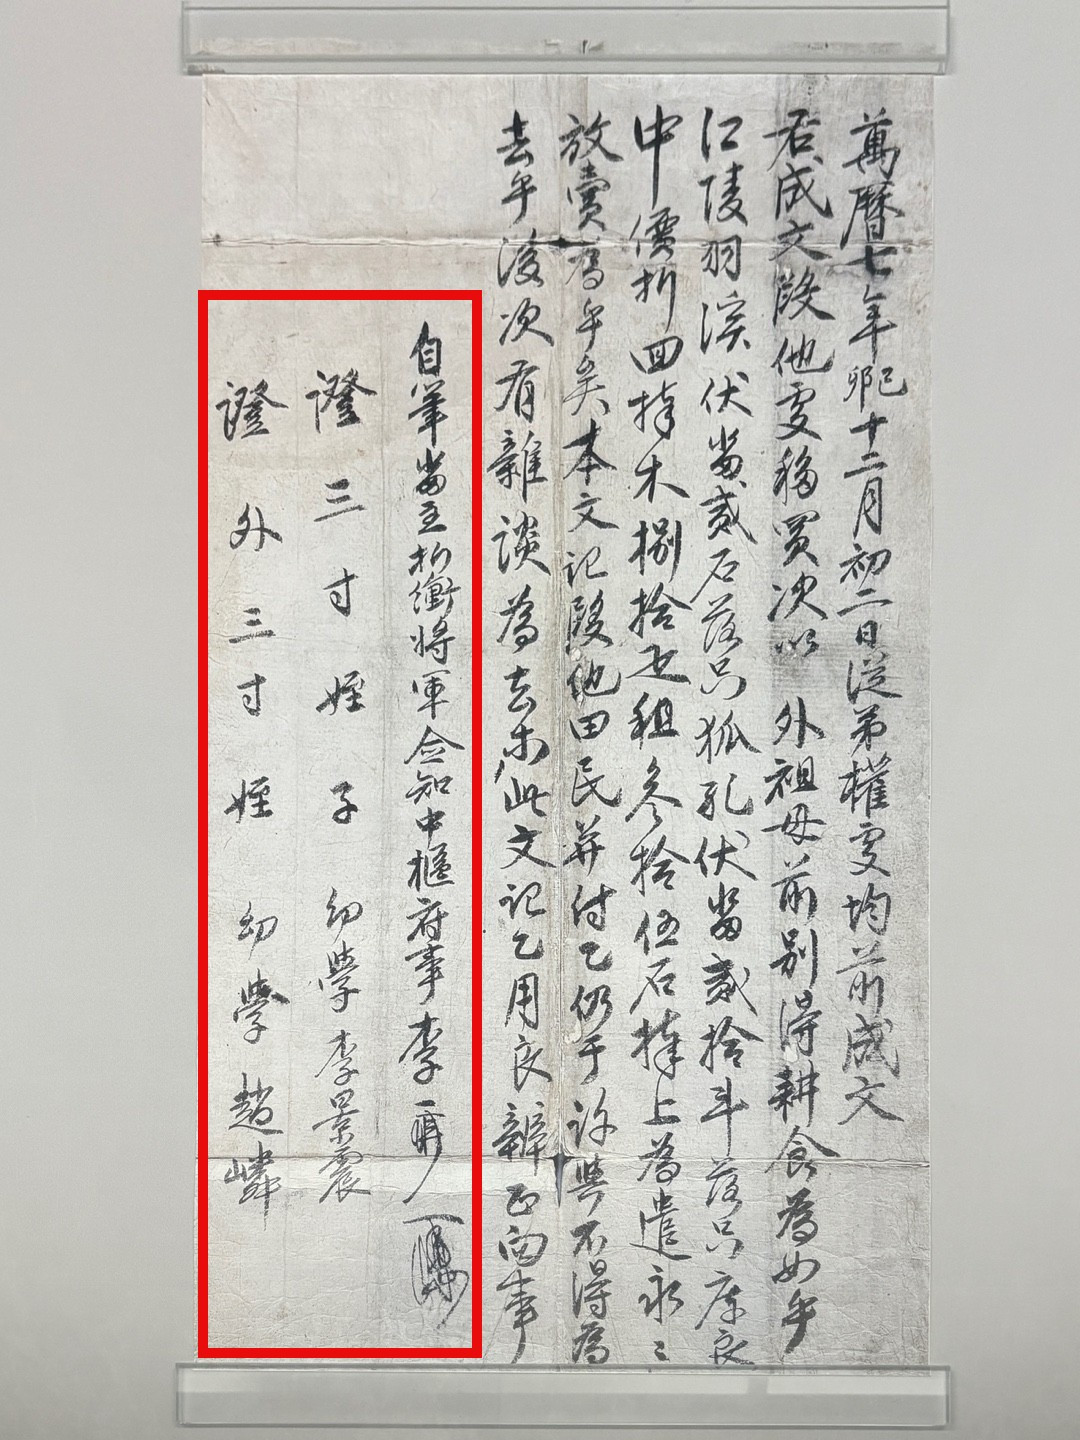 萬曆七年己卯十二月初二日從弟權處均前成文
右成文段他處移買次以 外祖母前別得耕食爲如乎
江陵羽溪伏畓貳石落只狐孔伏畓貳拾斗落只庫良
中價折四捧木捌拾疋租參拾伍石捧上爲遣永〻
放賣爲乎矣本文記段他田民幷付乙仍于許與不得爲
去乎後次有雜談爲去等此文記乙用良辨正向事
自筆畓主折衝將軍僉知中樞府事李
證三寸姪子幼學李景震
證外三寸姪幼學趙嶙